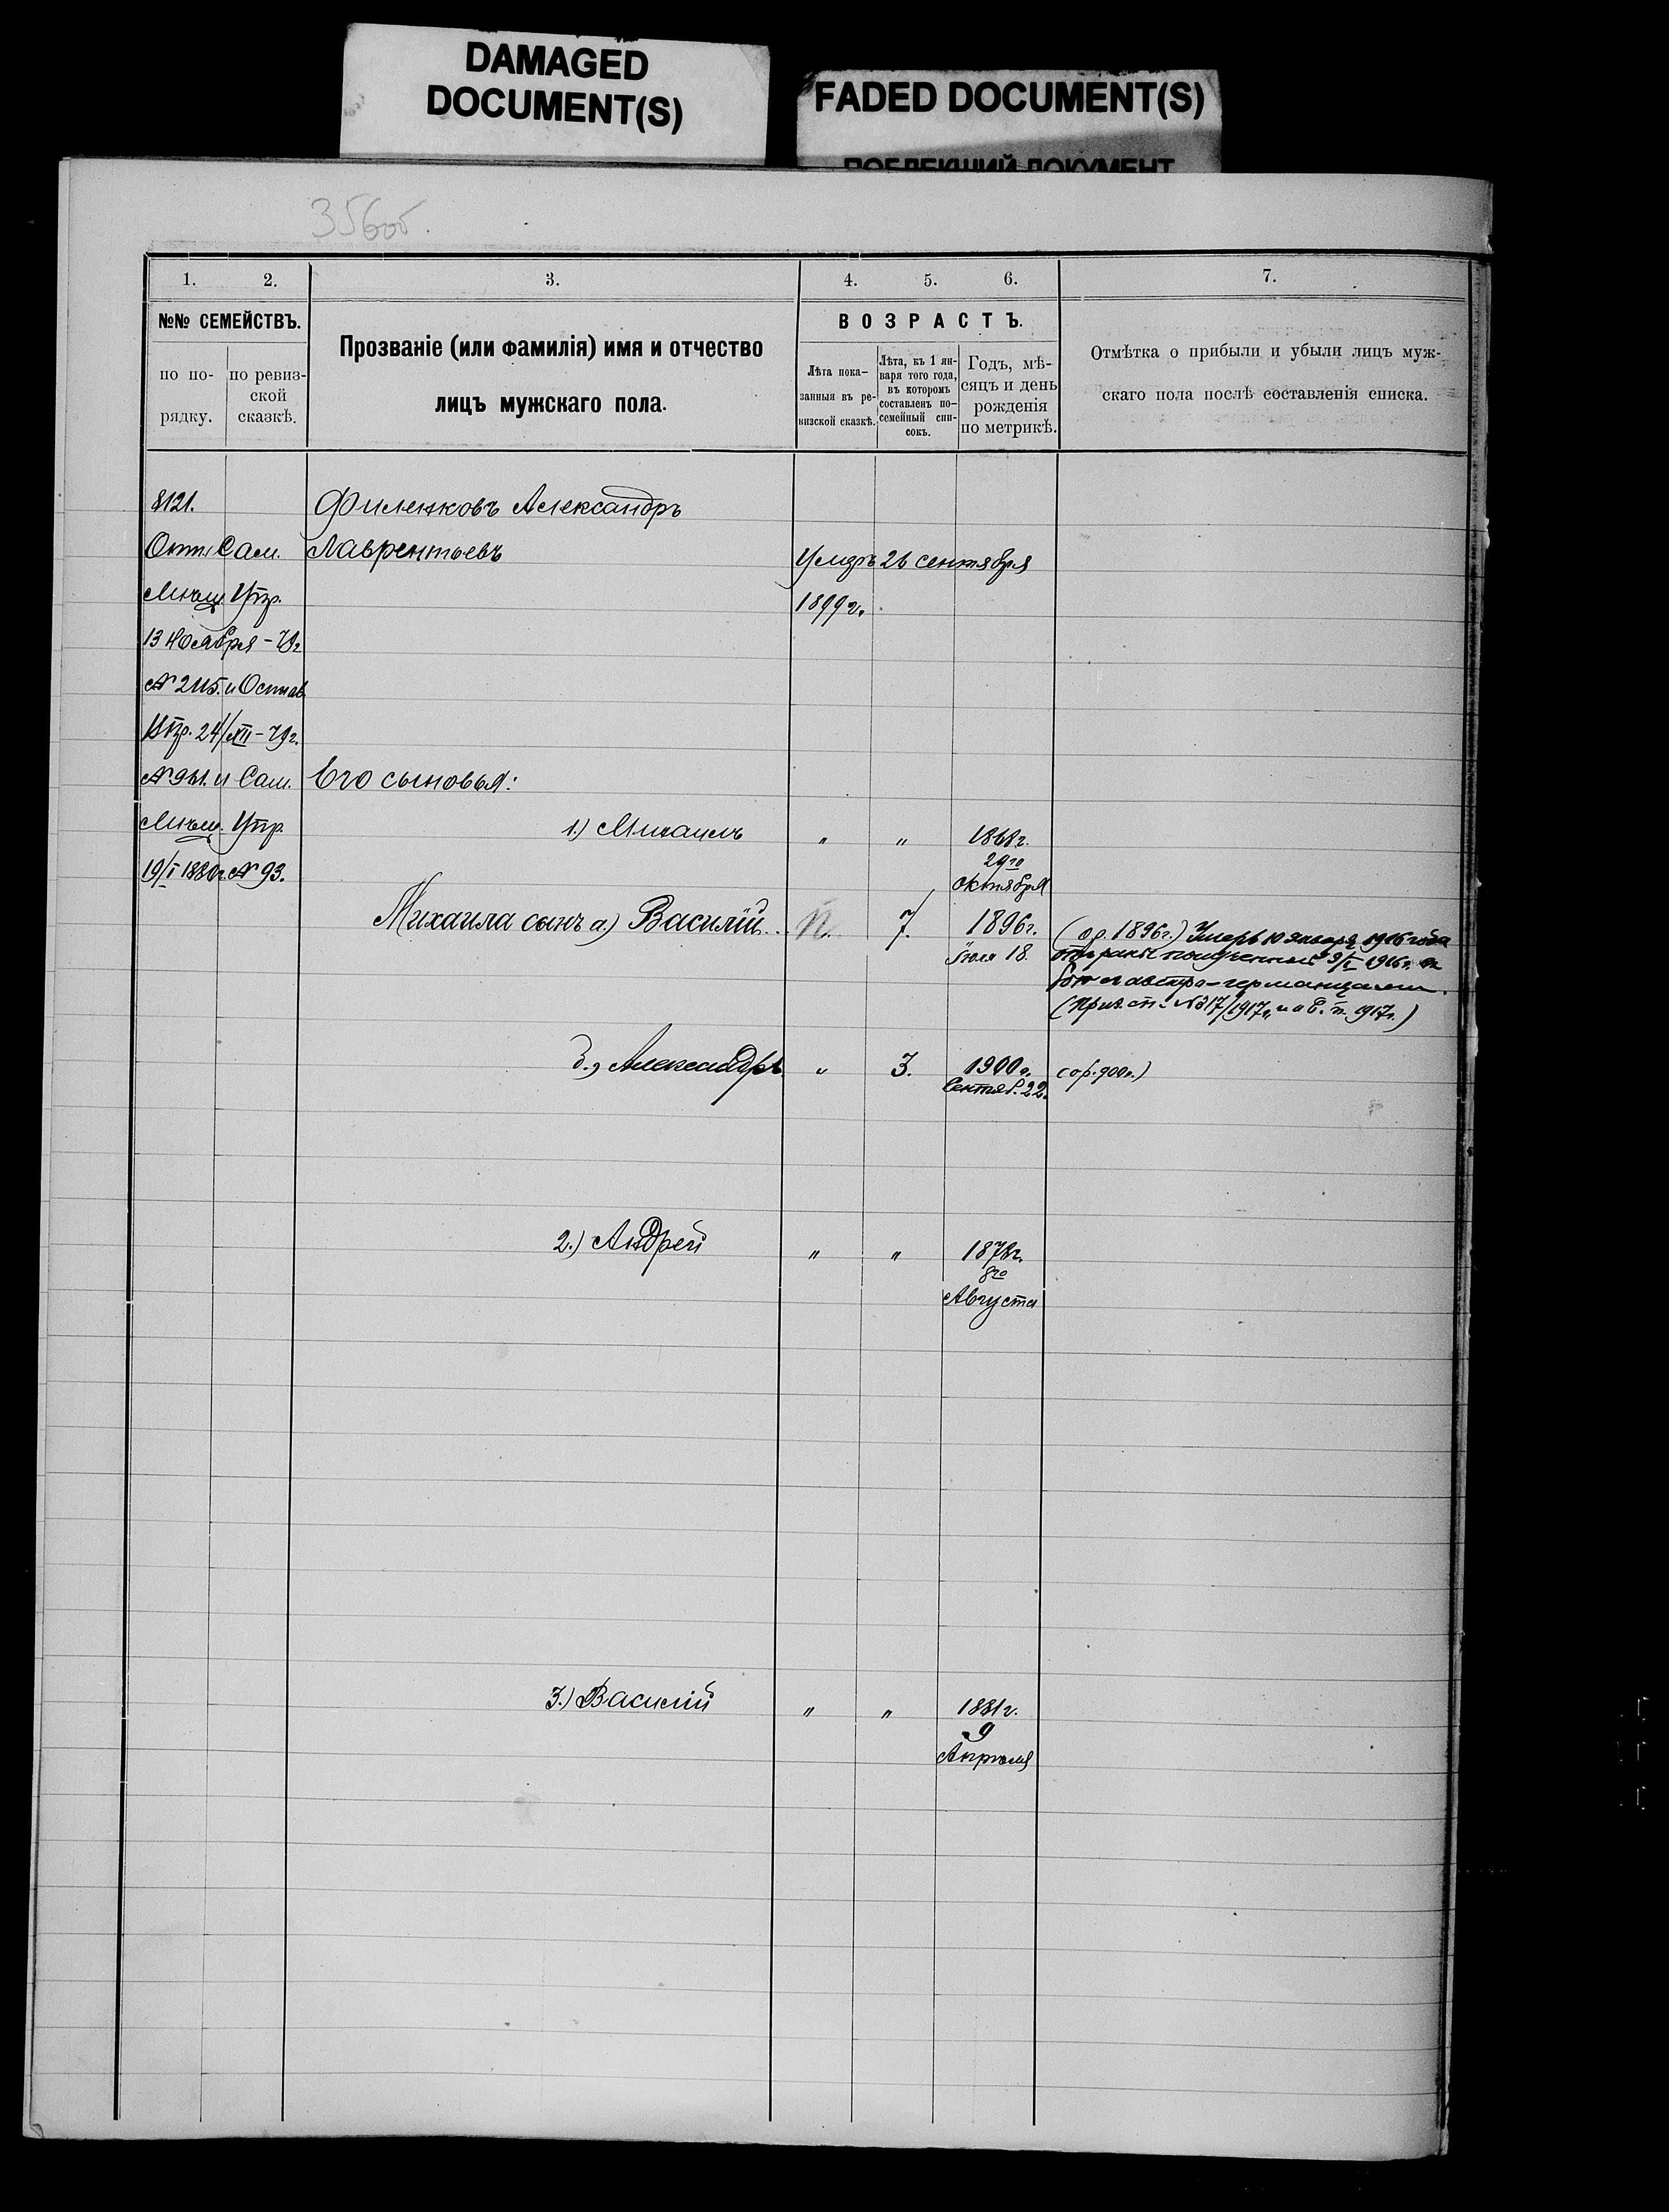 DAMAGED
DOCUMENT(S)
FADED DOCUMENT(S)
ПОБЛЕКШИЙ ДОКУМЕНТ
356об.
1. 2. 3. 4. 5. 6. 7.
№№ СЕМЕЙСТВЪ.
по по-
рядку.
по ревиз-
ской
сказкѣ.
Прозваніе (или фамилія) имя и отчество
лицъ мужскаго пола.
ВОЗРАСТЪ.
Лѣта пока-
занныя въ ре-
визской сказкѣ.
Лѣта, къ 1 ян-
варя того года,
въ которомъ
составленъ по-
семейный спи-
сокъ.
Годъ, мѣ-
сяцъ и день
рожденія
по метрикѣ.
Отмѣтка о прибыли и убыли лицъ муж-
скаго пола послѣ составленія списка.
8121.
Отн. Сам.
Мѣщ. Упр.
13 Ноября - 79г.
№ 2115. и Став.
24/XII - 79г.
№ 961. и Сам.
Мѣщ. Упр.
19/I 1880г. № 93.
Филенковъ Александръ
Лаврентьевъ
Умеръ 26 сентября
1899 г.
Его сыновья:
1.) Михаилъ " " 1868г.
29го
Октября
Михаила сынъ а.) Василій. п. 7. 1896г.
Іюля 18.
(ор. 1896г.) Умеръ 10 января 1916 года
отъ раны полученной 9/I 1916г. въ
бою съ австро-германцами.
(Приг. ст. № 17/1917г. 1917г.)
б.) Александръ " 3. 1900г. (ор. 900г.)
Сентяб. 22.
2.) Андрей " " 1878г.
8го
Августа
3.) Василій " " 1881г.
9
Апрѣля